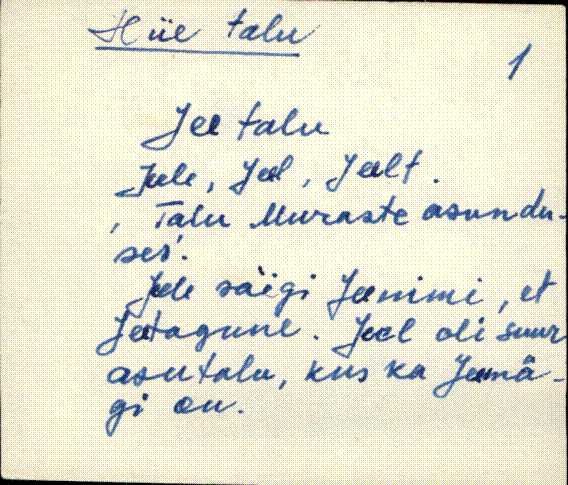 Hiie talu
1
Jee talu
Jeele, Jeel, Jeelt.
, Talu Muraste asundu-
ses'.
Jeele säigi Jeenimi, et
Jeetagune. Jeel oli suur
asutalu, kus ka Jeemä-
gi on.